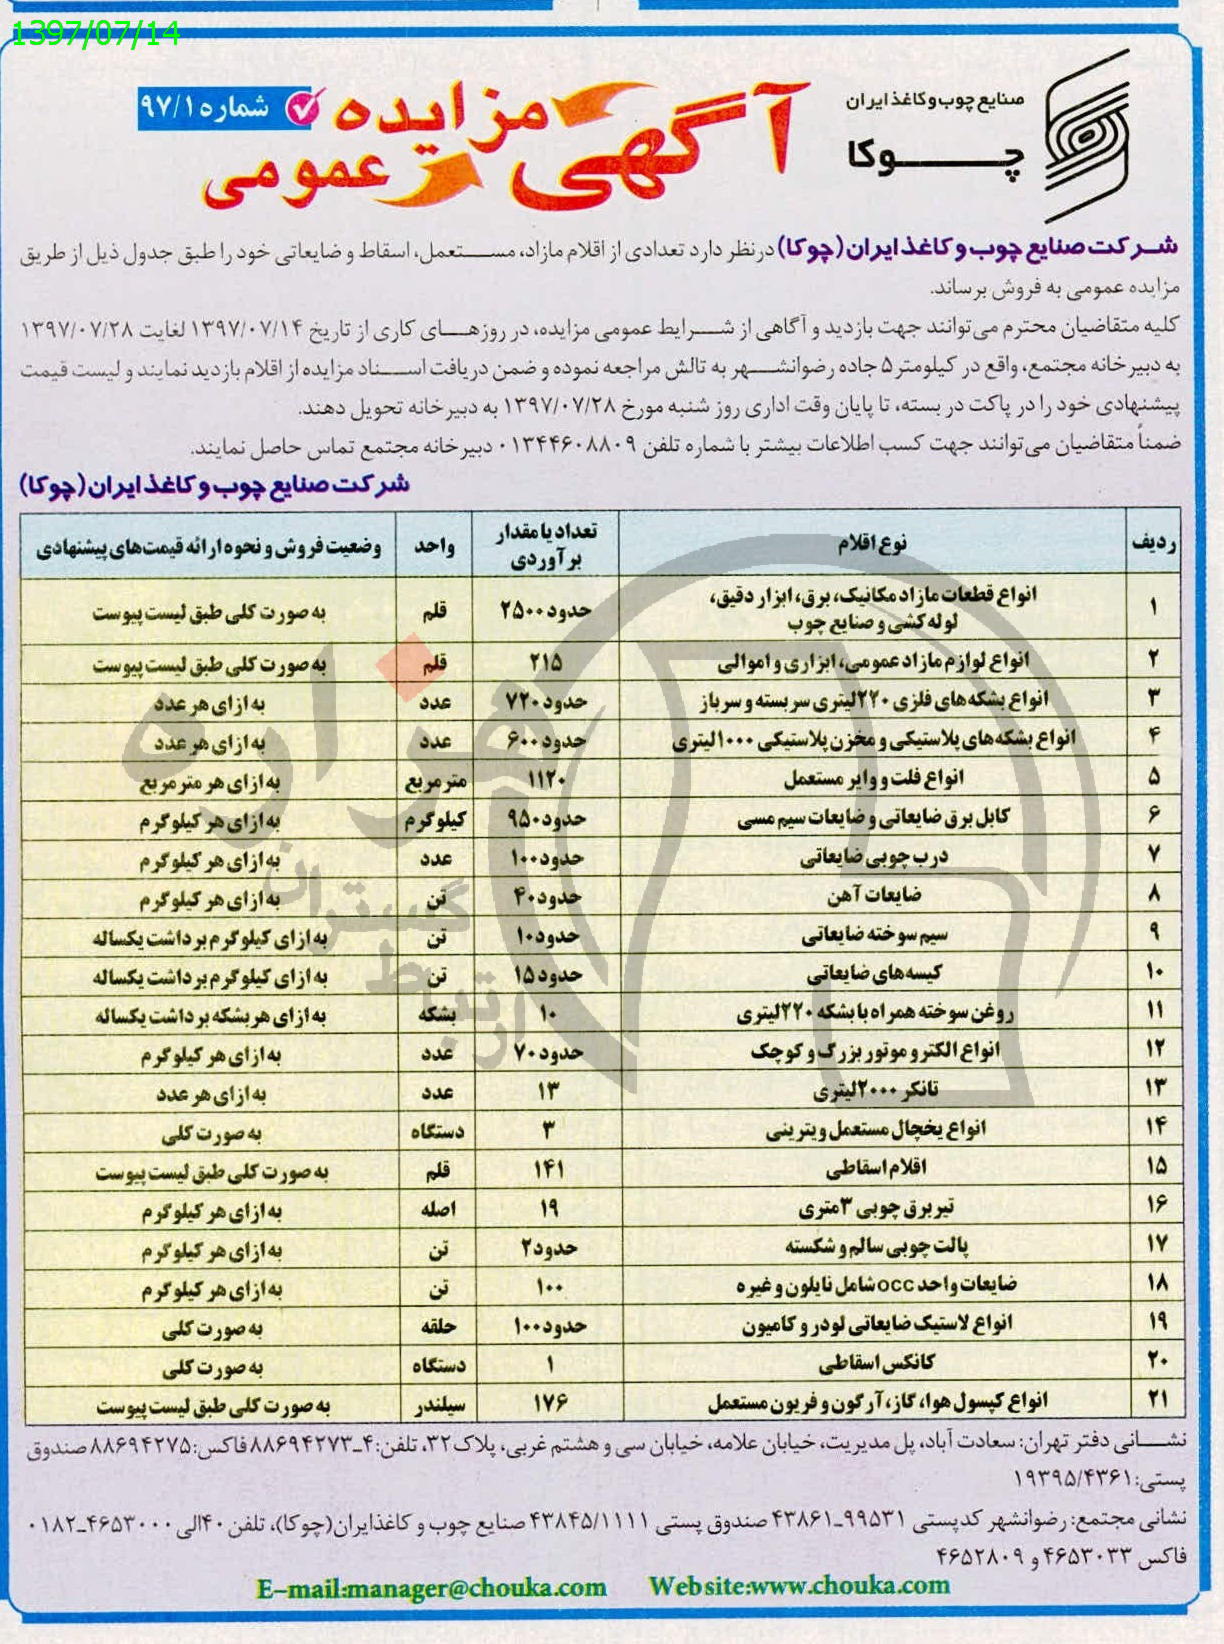 1397/07/14
صنایع چوب و کاغذ ایران
چوکا
آگهی مزایده عمومی
شماره ۹۷/۱
شرکت صنایع چوب و کاغذ ایران (چوکا) در نظر دارد تعدادی از اقلام مازاد، مستعمل، اسقاط و ضایعاتی خود را طبق جدول ذیل از طریق
مزایده عمومی به فروش برساند.
کلیه متقاضیان محترم می‌توانند جهت بازدید و آگاهی از شرایط عمومی مزایده، در روزهای کاری از تاریخ ۱۳۹۷/۰۷/۱۴ لغایت ۱۳۹۷/۰۷/۲۸
به دبیرخانه مجتمع، واقع در کیلومتر ۵ جاده رضوانشهر به تالش مراجعه نموده و ضمن دریافت اسناد مزایده از اقلام بازدید نمایند و لیست قیمت
پیشنهادی خود را در پاکت در بسته، تا پایان وقت اداری روز شنبه مورخ ۱۳۹۷/۰۷/۲۸ به دبیرخانه تحویل دهند.
ضمناً متقاضیان می‌توانند جهت کسب اطلاعات بیشتر با شماره تلفن ۰۱۳۴۴۶۰۸۸۰۹ دبیرخانه مجتمع تماس حاصل نمایند.
شرکت صنایع چوب و کاغذ ایران (چوکا)
ردیف نوع اقلام تعداد یا مقدار برآوردی واحد وضعیت فروش و نحوه ارائه قیمت‌های پیشنهادی
۱ انواع قطعات مازاد مکانیک، برق، ابزار دقیق، لوله کشی و صنایع چوب حدود ۲۵۰۰ قلم به صورت کلی طبق لیست پیوست
۲ انواع لوازم مازاد عمومی، ابزاری و اموالی ۲۱۵ قلم به صورت کلی طبق لیست پیوست
۳ انواع بشکه‌های فلزی ۲۲۰ لیتری سر بسته و سرباز حدود ۷۲۰ عدد به ازای هر عدد
۴ انواع بشکه‌های پلاستیکی و مخزن پلاستیکی ۱۰۰۰ لیتری حدود ۶۰۰ عدد به ازای هر عدد
۵ انواع فلت و وایر مستعمل ۱۱۲۰ متر مربع به ازای هر متر مربع
۶ کابل برق ضایعاتی و ضایعات سیم مسی حدود ۹۵۰ کیلوگرم به ازای هر کیلوگرم
۷ درب چوبی ضایعاتی حدود ۱۰۰ عدد به ازای هر کیلوگرم
۸ ضایعات آهن حدود ۴۰ تن به ازای هر کیلوگرم
۹ سیم سوخته ضایعاتی حدود ۱۰ تن به ازای کیلوگرم برداشت یکساله
۱۰ کیسه‌های ضایعاتی حدود ۱۵ تن به ازای کیلوگرم برداشت یکساله
۱۱ روغن سوخته همراه با بشکه ۲۲۰ لیتری ۱۰ بشکه به ازای هر بشکه برداشت یکساله
۱۲ انواع الکترو موتور بزرگ و کوچک حدود ۷۰ عدد به ازای هر کیلوگرم
۱۳ تانکر ۲۰۰۰ لیتری ۱۳ عدد به ازای هر عدد
۱۴ انواع یخچال مستعمل ویترینی ۳ دستگاه به صورت کلی
۱۵ اقلام اسقاطی ۱۴۱ قلم به صورت کلی طبق لیست پیوست
۱۶ تیر برق چوبی ۳ متری ۱۹ اصله به ازای هر کیلوگرم
۱۷ پالت چوبی سالم و شکسته حدود ۲ تن به ازای هر کیلوگرم
۱۸ ضایعات واحد occ شامل نایلون و غیره ۱۰۰ تن به ازای هر کیلوگرم
۱۹ انواع لاستیک ضایعاتی لودر و کامیون حدود ۱۰۰ حلقه به صورت کلی
۲۰ کانکس اسقاطی ۱ دستگاه به صورت کلی
۲۱ انواع کپسول هوا، گاز، آرگون و فریون مستعمل ۱۷۶ سیلندر به صورت کلی طبق لیست پیوست
نشانی دفتر تهران: سعادت آباد، پل مدیریت، خیابان علامه، خیابان سی و هشتم غربی، پلاک ۳۲، تلفن: ۴-۸۸۶۹۴۲۷۳ فاکس: ۸۸۶۹۴۲۷۵ صندوق
پستی: ۱۹۳۹۵/۴۳۶۱
نشانی مجتمع: رضوانشهر کدپستی ۹۹۵۳۱-۴۳۸۶۱ صندوق پستی ۴۳۸۴۵/۱۱۱۱ صنایع چوب و کاغذ ایران (چوکا)، تلفن ۴۰ الی ۴۶۵۳۰۰۰-۰۱۸۲
فاکس ۴۶۵۳۰۳۳ و ۴۶۵۲۸۰۹
E-mail:manager@chouka.com Website:www.chouka.com